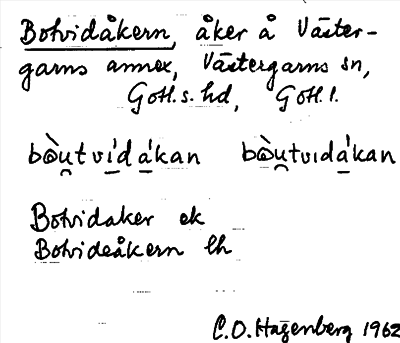 Botvidåkern, åker å Väster-
garns annex, Västergarns sn,
Gotl. s. hd, Gotl. l.
bòu̯tvídákan bòu̯tvıdákan
Botvidaker ek
Botvideåkern lh
C.O. Hagenberg 1962